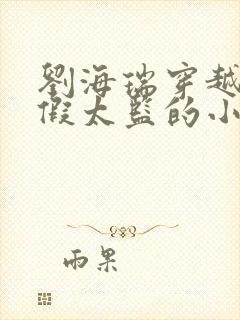 劉海瑞穿越
假太監的小
雨果